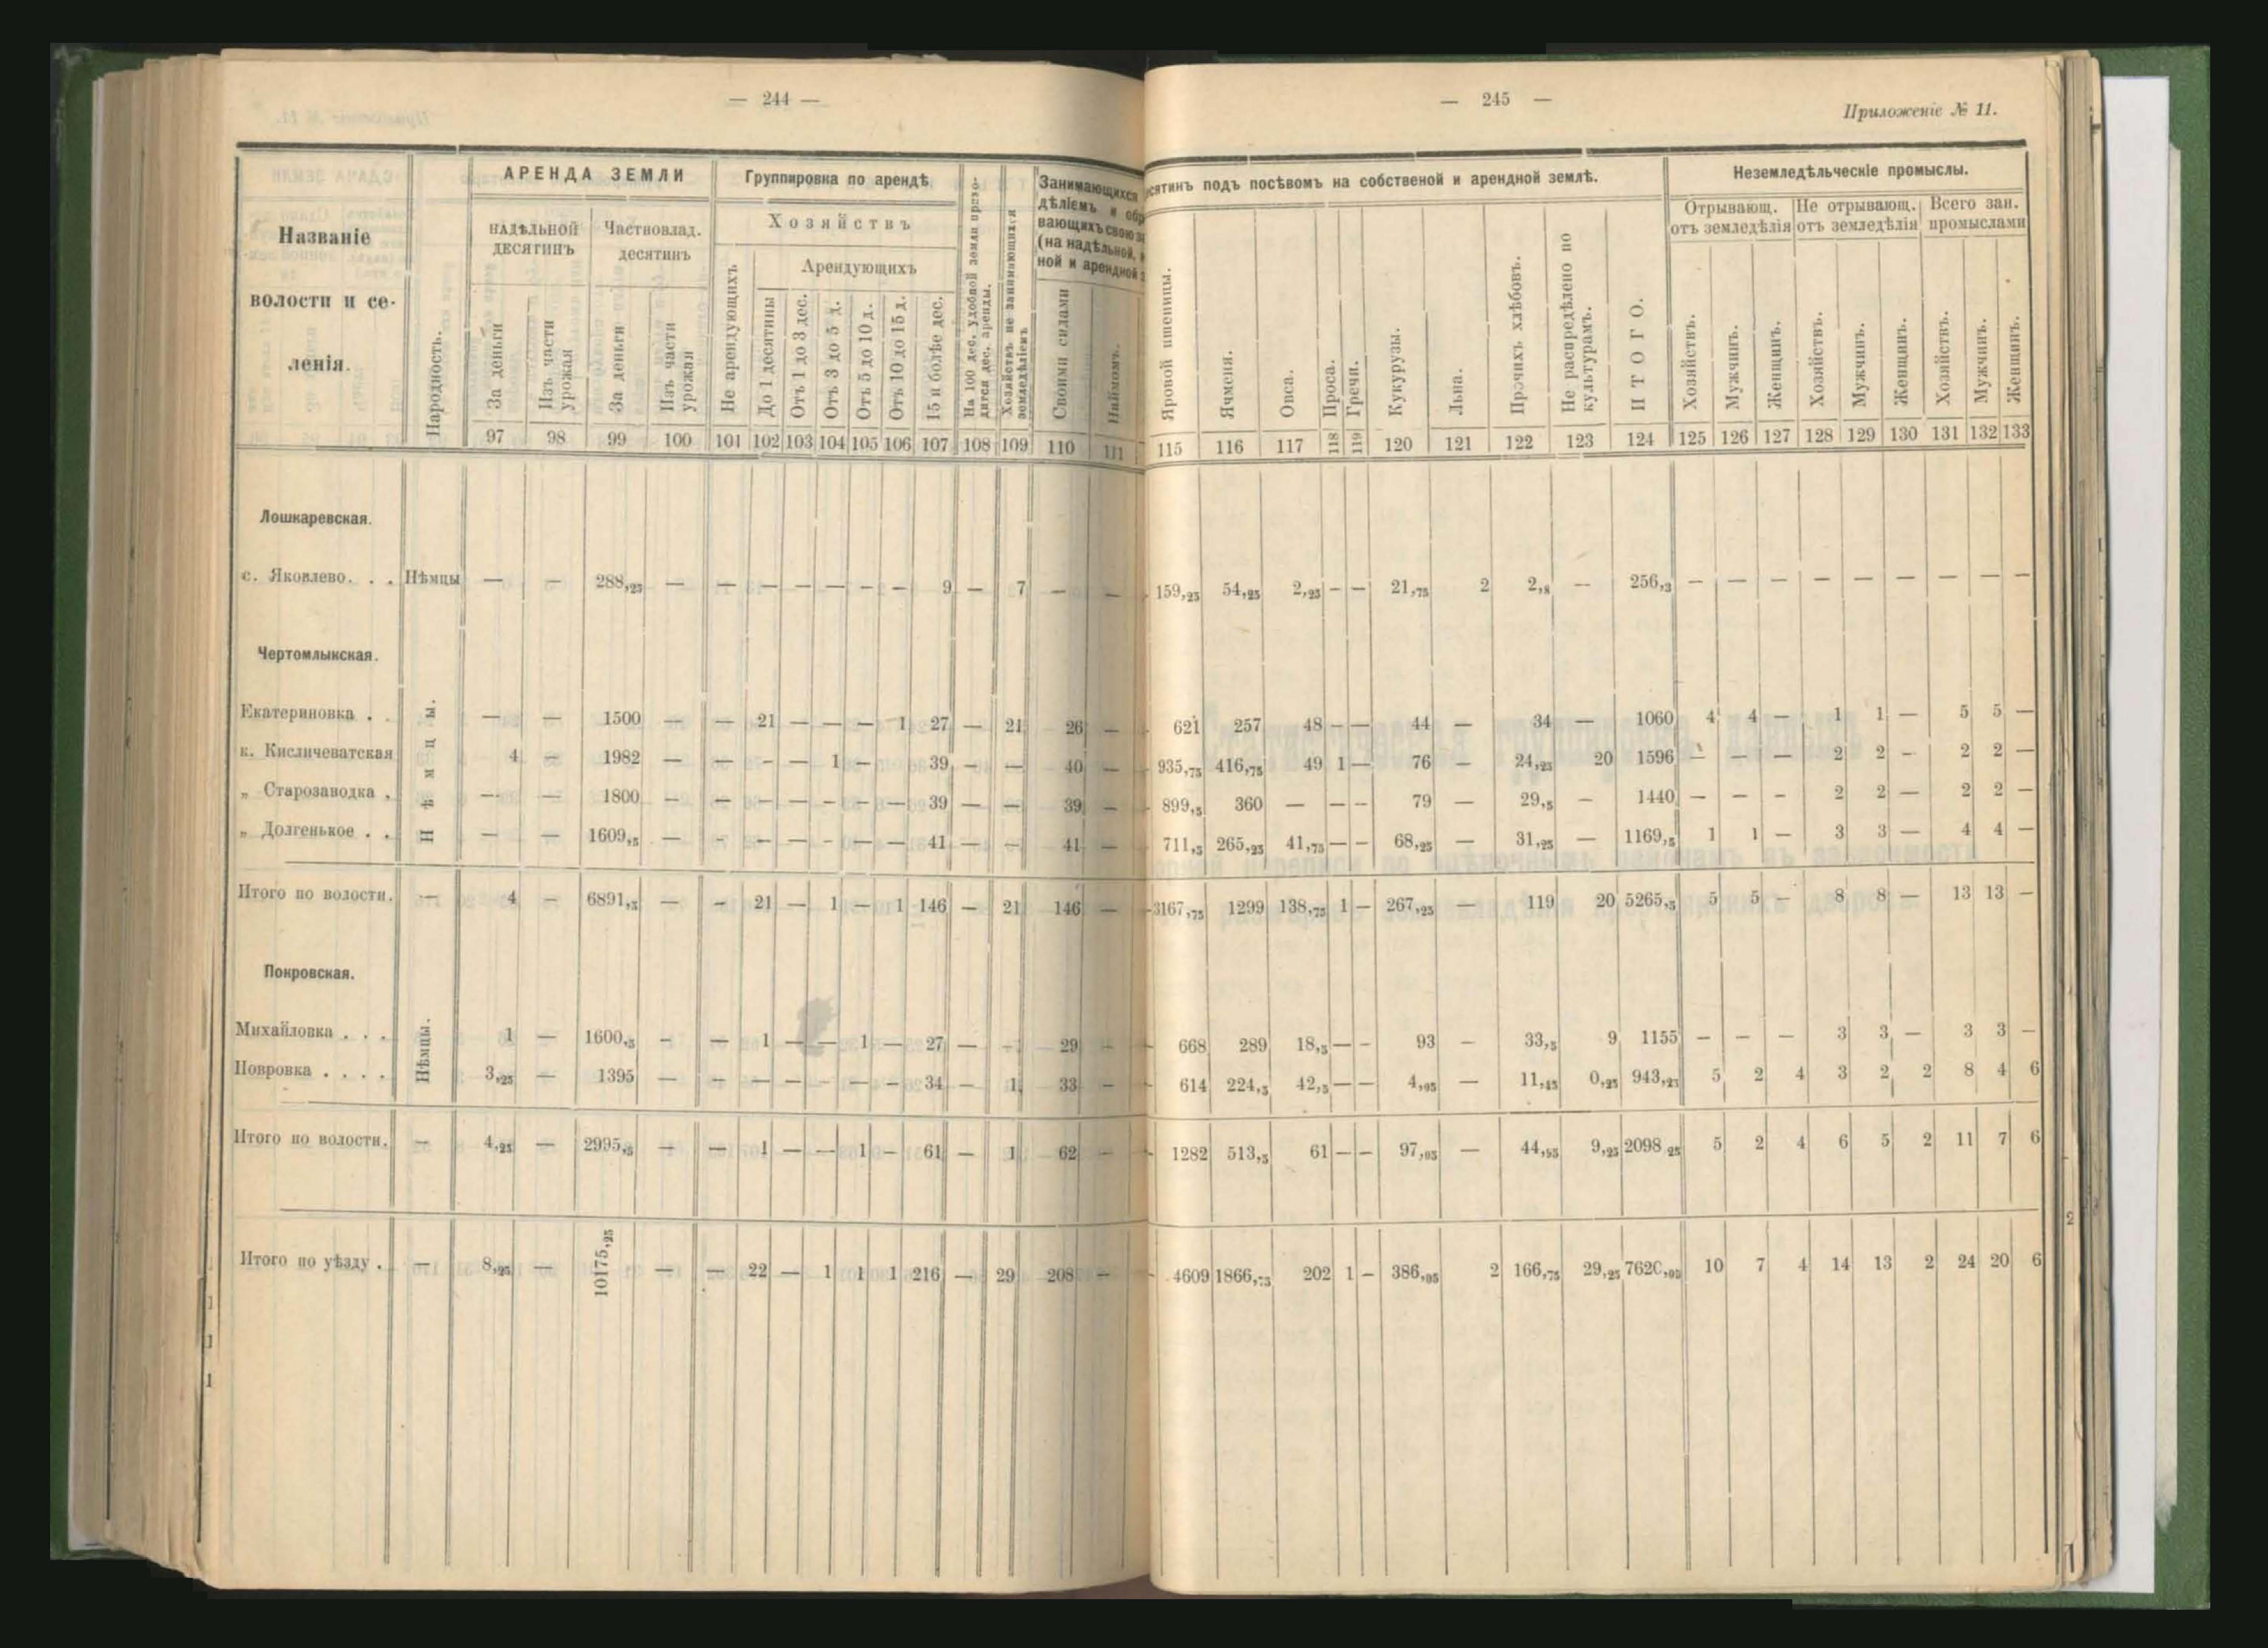 — 244 —
АРЕНДА ЗЕМЛИ
Группировка по арендѣ
Названіе волости и се-
ленія.
Народность.
НАДѢЛЬНОЙ ДЕСЯТИНЪ
Частновлад. десятинъ
Хозяйствъ
Арендующихъ
За деньги
Изъ части урожая
За деньги
Изъ части урожая
Не арендующихъ
До 1 десятины
Отъ 1 до 3 дес.
Отъ 3 до 5 д.
Отъ 5 до 10 д.
Отъ 10 до 15 д.
15 и болѣе дес.
На 100 дес. удобной земли прихо-
дится дес. аренды.
Хозяйствъ не занимающихся
земледѣліемъ
Занимающихся
дѣліемъ и обр
вающихъ свою з
(на надѣльной,
ной и арендной
Своими силами
Наймомъ.
97 98 99 100 101 102 103 104 105 106 107 108 109 110 111
Лошкаревская.
с. Яковлево. . . Нѣмцы — — 288,25 — — — — — — — 9 — 7 — —
Чертомлыкская.
Нѣмцы.
Екатериновка . . — — 1500 — — 21 — — — 1 27 — 21 26 —
к. Кисличеватская 4 — 1982 — — - — 1 — 39 — — 40 —
„ Старозаводка . — — 1800 — — — — - — — 39 — — 39 —
„ Долгенькое . . — — 1609,5 — - — — - — — 41 — — 41 —
Итого по волости. — 4 — 6891,5 — - 21 — 1 — 1 146 — 21 146 —
Покровская.
Нѣмцы.
Михайловка . . . 1 — 1600,5 - — 1 — — 1 — 27 — - 29 —
Повровка . . . . 3,25 — 1395 — - — — - — — 34 — 1 33 —
Итого по волости. — 4,25 — 2995,5 — — 1 — — 1 — 61 — 1 62 —
Итого по уѣзду . — 8,25 — 10175,25 — — 22 — 1 1 1 216 — 29 208 —
— 245 —
Приложеніе № 11.
сятинъ подъ посѣвомъ на собственой и арендной землѣ.
Неземледѣльческіе промыслы.
Отрывающ. отъ земледѣлія
Не отрывающ. отъ земледѣлія
Всего зан. промыслами
Яровой пшеницы.
Ячменя.
Овса.
Проса.
Гречи.
Кукурузы.
Льна.
Прочихъ хлѣбовъ.
Не распредѣлено по
культурамъ.
ИТОГО.
Хозяйствъ.
Мужчинъ.
Женщинъ.
Хозяйствъ.
Мужчинъ.
Женщинъ.
Хозяйствъ.
Мужчинъ.
Женщинъ.
115 116 117 118 119 120 121 122 123 124 125 126 127 128 129 130 131 132 133
159,25 54,25 2,25 — — 21,75 2 2,8 — 256,3 — — — — — — — — —
621 257 48 — — 44 — 34 — 1060 4 4 — 1 1 — 5 5 —
935,75 416,75 49 1 — 76 — 24,25 20 1596 — — — 2 2 - 2 2 —
899,5 360 — — - 79 — 29,5 — 1440 — — - 2 2 — 2 2 —
711,5 265,25 41,75 — — 68,25 — 31,25 — 1169,5 1 1 — 3 3 — 4 4 —
3167,75 1299 138,75 1 — 267,25 — 119 20 5265,5 5 5 — 8 8 — 13 13 —
668 289 18,5 — - 93 — 33,5 9 1155 — — — 3 3 — 3 3 —
614 224,5 42,5 — — 4,05 — 11,45 0,25 943,25 5 2 4 3 2 2 8 4 6
1282 513,5 61 — — 97,05 — 44,95 9,25 2098 25 5 2 4 6 5 2 11 7 6
4609 1866,75 202 1 — 386,05 2 166,75 29,25 7620,05 10 7 4 14 13 2 24 20 6